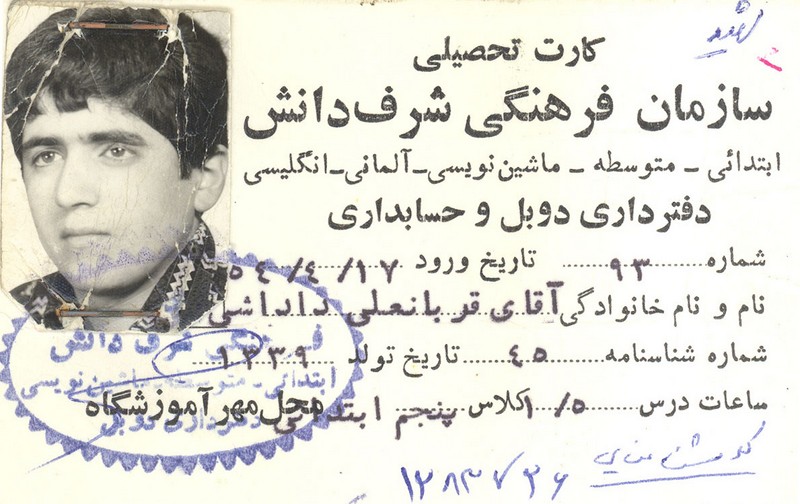 شهید
کارت تحصیلی
سازمان فرهنگی شرف دانش
ابتدائی - متوسطه - ماشین نویسی - آلمانی - انگلیسی
دفترداری دوبل و حسابداری
شماره ۹۳ تاریخ ورود ۵۴/۴/۱۷
نام و نام خانوادگی آقای قربانعلی داداشی
شماره شناسنامه ۴۵ تاریخ تولد ۱۳۳۹
ساعات درس ۱/۵ کلاس پنجم ابتدائی
محل مهر آموزشگاه
فرهنگی شرف دانش
ابتدائی - متوسطه - ماشین نویسی
دفترداری دوبل